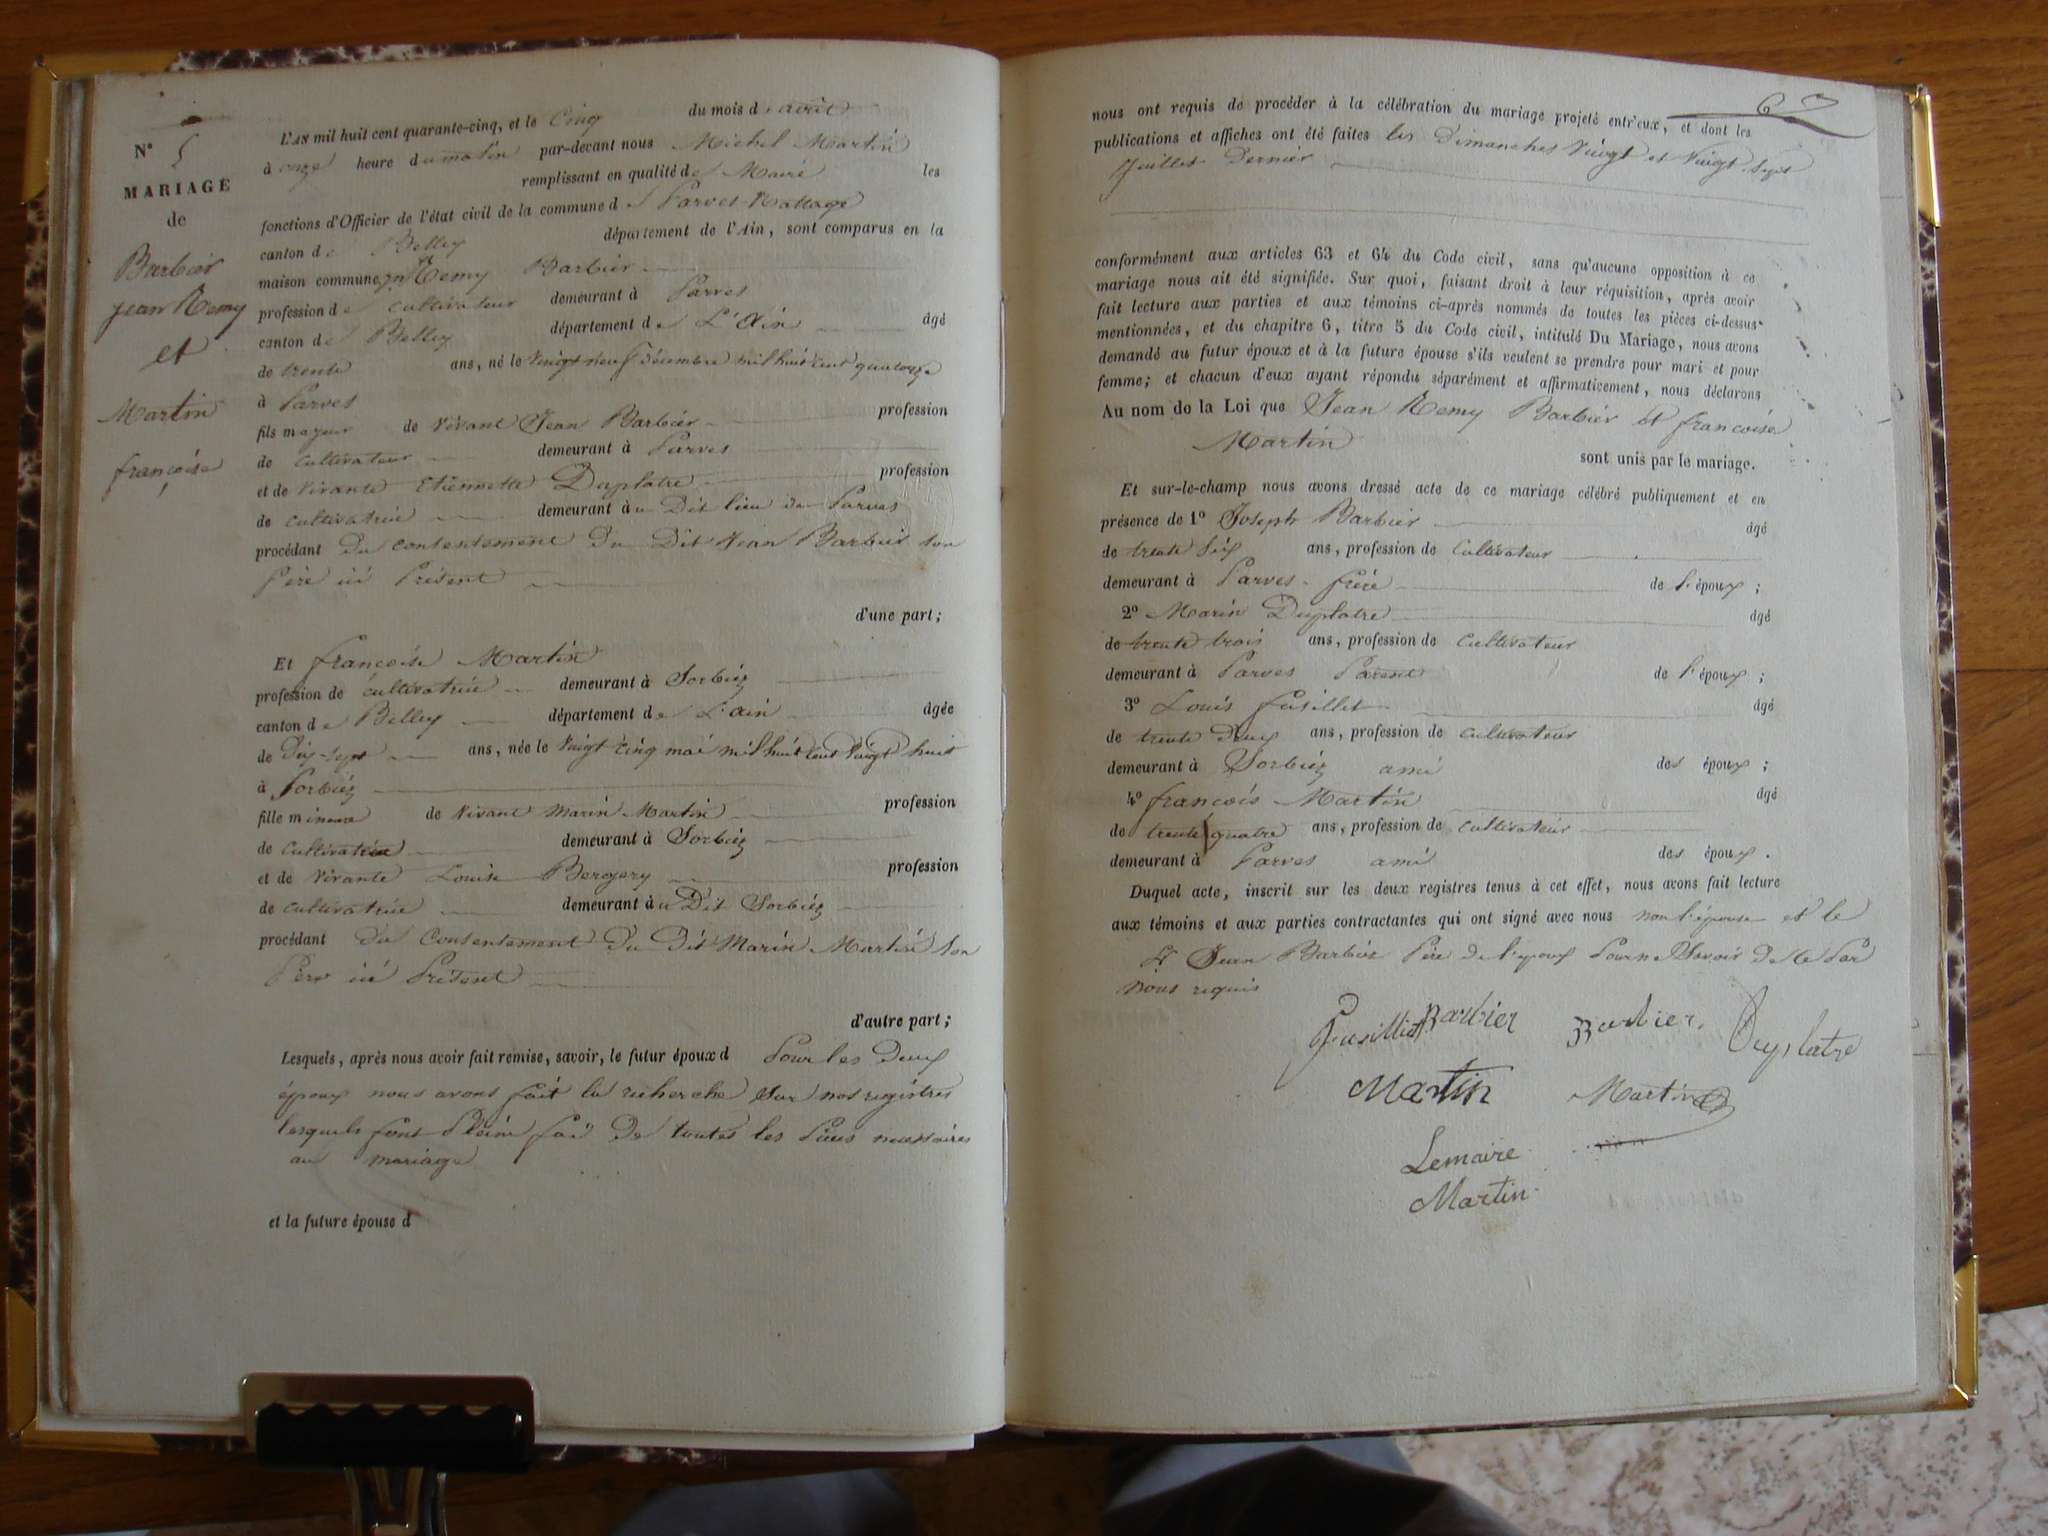 N° 5
MARIAGE
de
Barbier
jean Remy
et
Martin
françoise
L'AN mil huit cent quarante-cinq, et le Cinq du mois d'août
à onze heure du matin par-devant nous Michel Martin
remplissant en qualité de Maire les
fonctions d'Officier de l'état civil de la commune de Parves-Nattage
canton de Belley département de l'Ain, sont comparus en la
maison commune, Jn Remy Barbier
profession de cultivateur demeurant à Parves
canton de Belley département de L'Ain âgé
de trente ans, né le Vingt neuf Décembre mil huit cent quatorze
à Parves
fils majeur de vivant Jean Barbier profession
de cultivateur demeurant à Parves
et de vivante Etiennette Duplatre profession
de cultivatrice demeurant àu Dit lieu de Parves
procédant Du consentement Du Dit Jean Barbier son
Père ici Présent
d'une part;
Et françoise Martin
profession de cultivatrice demeurant à Sorbiéz
canton de Belley département de L'ain âgée
de Dix-sept ans, née le Vingt cinq mai mil huit cent vingt huit
à Sorbiéz
fille mineure de vivant Marin Martin profession
de cultivateur demeurant à Sorbiéz
et de vivante Louise Bergery profession
de cultivatrice demeurant àu Dit Sorbiéz
procédant du Consentement Du Dit Marin Martin son
Père ici Présent
d'autre part;
Lesquels, après nous avoir fait remise, savoir, le futur époux d Pour les Deux
époux nous avons fait la recherche Sur nos registres
lesquels font Pleine foi De toutes les Pièces necessaires
au mariage
et la future épouse d
67
nous ont requis de procéder à la célébration du mariage projeté entr'eux, et dont les
publications et affiches ont été faites les Dimanches Vingt et Vingt Sept
Juillet Dernier
conformément aux articles 63 et 64 du Code civil, sans qu'aucune opposition à ce
mariage nous ait été signifiée. Sur quoi, faisant droit à leur réquisition, après avoir
fait lecture aux parties et aux témoins ci-après nommés de toutes les pièces ci-dessus
mentionnées, et du chapitre 6, titre 5 du Code civil, intitulé Du Mariage, nous avons
demandé au futur époux et à la future épouse s'ils veulent se prendre pour mari et pour
femme; et chacun d'eux ayant répondu séparément et affirmativement, nous déclarons
Au nom de la Loi que Jean Remy Barbier et françoise
Martin
sont unis par le mariage.
Et sur-le-champ nous avons dressé acte de ce mariage célébré publiquement et en
présence de 1° Joseph Barbier âgé
de trente Six ans, profession de Cultivateur
demeurant à Parves frère de l'époux;
2° Marin Duplatre âgé
de trente trois ans, profession de Cultivateur
demeurant à Parves Parent de l'époux;
3° Louis Fusillet âgé
de trente Deux ans, profession de cultivateur
demeurant à Sorbiéz ami des époux;
4° françois Martin âgé
de trente quatre ans, profession de cultivateur
demeurant à Parves ami des époux.
Duquel acte, inscrit sur les deux registres tenus à cet effet, nous avons fait lecture
aux témoins et aux parties contractantes qui ont signé avec nous non l'épouse et le
Sr Jean Barbier Père de l'époux Pour ne Savoir De Ce Par
nous requis
Fusillet Barbier Barbier Duplatre
Martin Martin
Lemaire
Martin